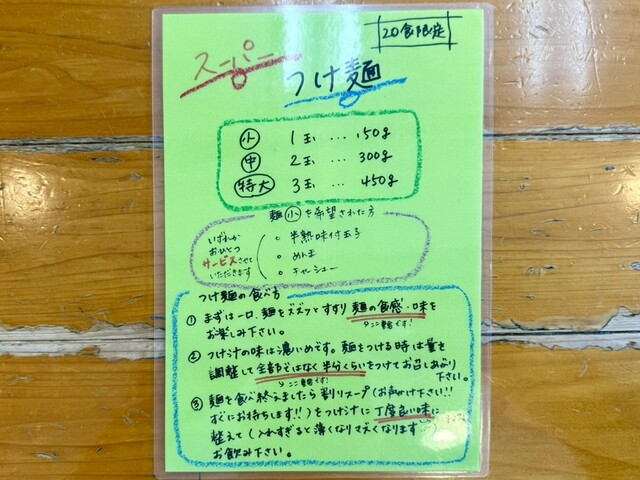 20食限定
スーパー
つけ麺
小 1玉 … 150g
中 2玉 … 300g
特大 3玉 … 450g
麺小を希望された方
いずれか
おひとつ
サービスさせて
いただきます
半熟味付玉子
めんま
チャーシュー
つけ麺の食べ方
① まずは一口、麺をズズッとすすり麺の食感・味を
お楽しみ下さい。
② つけ汁の味は濃いめです。麺をつける時は量を
調整して全部ではなく半分くらいをつけてお召しあがり
下さい。
③ 麺を食べ終えましたら割りスープ(お声がけ下さい!!
すぐにお持ちします!!)をつけ汁に丁度良い味に
整えて(入れすぎると薄くなりマズくなります
お飲み下さい。